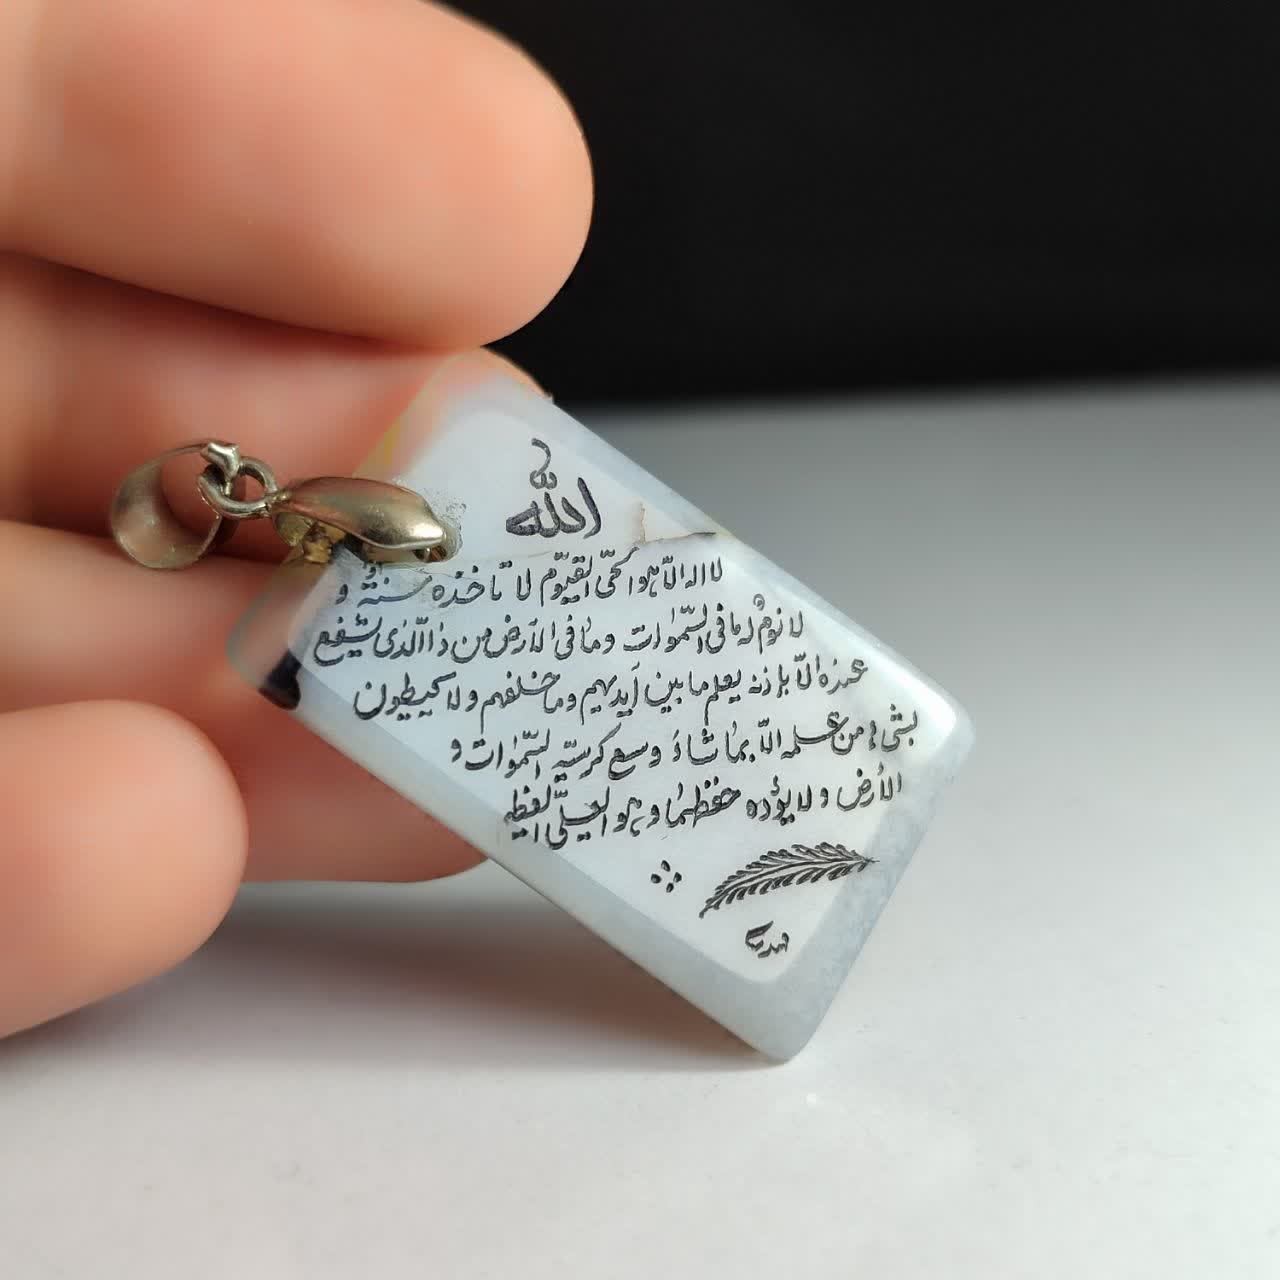 الله
لا اله الّا هو الحَیّ القیّوم لا تاخذه سنةٌ و
لا نومٌ له ما فی السّمٰوات و ما فی الارض من ذا الّذی یشفع
عنده الّا باذنه یعلم ما بین اَیدیهم و ما خلفهم و لا یحیطون
بشیء من علمه الّا بما شاءَ وسع کرسیّه السّمٰوات و
الأرض و لا یؤده حفظهما و هو العلیّ العظیم